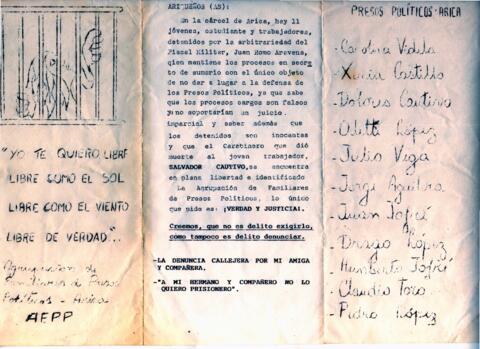 "YO TE QUIERO LIBRE
LIBRE COMO EL SOL
LIBRE COMO EL VIENTO
LIBRE DE VERDAD"...
Agrupación de
Familiares de Presos
Políticos - Arica
AFPP
ARIQUEÑOS (AS):
En la cárcel de Arica, hay 11
jóvenes, estudiante y trabajadores,
detenidos por la arbitrariedad del
Fiscal Militar, Juan Romo Aravena,
quien mantiene los procesos en secre
to de sumario con el único objeto
de no dar a lugar a la defensa de
los Presos Políticos, ya que sabe
que los procesos cargos son falsos
y no soportarían un juicio.
imparcial y sabez además que
los detenidos son inocentes
y que el Carabinero que dió
muerte al joven trabajador,
SALVADOR CAUTIVO, se encuentra
en plena libertad e identificado
La Agrupación de Familiares
de Presos Políticos, lo único
que pide es: ¡VERDAD Y JUSTICIA!.
Creemos, que no es delito exigirlo,
cómo tampoco es delito denunciar.
-LA DENUNCIA CALLEJERA POR MI AMIGA
Y COMPAÑERA.
-"A MI HERMANO Y COMPAÑERO NO LO
QUIERO PRISIONERO".
PRESOS POLÍTICOS-ARICA
-Carolina Videla
-Ximena Castillo
-Dolores Cautivo
-Odette López
-Julio Vega
-Jorge Aguilera
-Juan Tapia
-Diego López
-Humberto
-Claudio Toro
-Pedro López